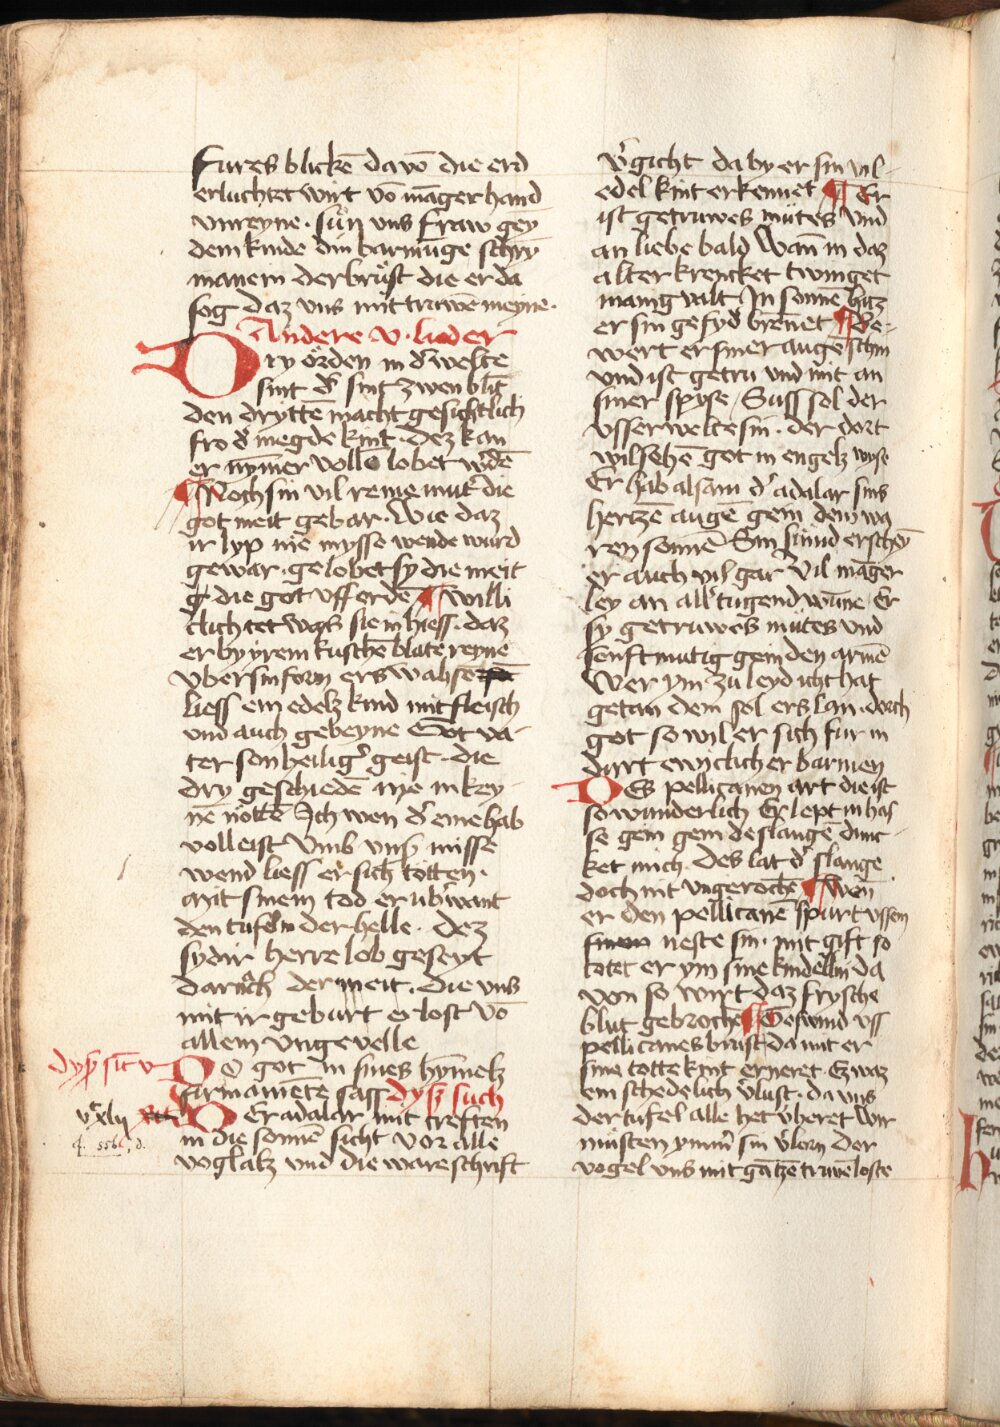 fures blickē davō die erd
erluchtet wirt vō māger hand
vnreyne · sūn vns fraw gey
dem kinde din barmūge schry
manem der brůst die er da
sog daz vns mit truwe meyne ·
Andere v · lieder
Dry örden in d' welte
sint d' sint zwen blīt
den dryttē macht gesichtlich
fro d' megde kint · dez kan
er nȳmer vollē lobet w'dē
¶ Noch sin vil reine mut' die
got meit gebar · wie daz
ir lyp nie mysse wende wurd
gewar · gelobet sy die meit
die got vff erdē ¶ willi
clich tet was sie in hiess · daz
er by yrem kuschē blūte reyne
vber sin form ers wahsē
liess ein edelz kind mit fleisch
vnd auch gebeyne Got va-
ter son heilig' geist · die
dry geschiedē nye in key-
nē nöttē Ich wen d' eine hab
volleist Vmb vnß misse
wend liess er sich tötten ·
mit sinem tod er üb'want
den tufeln der helle · Dez
sy dir herre lob geseyt
darnach der meit · die vns
mit ir geburt erlost vō
allem vngevelle
dyß sīt v
DO got in sines hymelz
firmamēte sass dyß such
v<sup>c</sup>xlij
Der adalar mit creften
in die sonnē sicht vor alle
voglalz vnd die ware schrift
v'gicht da by er sin vil-
edel kint erkennet ¶ Er
ist getruwes mütes vnd
an liebe bald Wan in daz
alter krencket twinget
manig valt In sonnē hitz
er sin gefyd' brēnet ¶ Be-
wert er siner augē schin
vnd ist getru vnd mit an
siner spyse / Suss sol der
vsserwelte sin · der dort
wil sehē got in engelz wyse
Er hab alsam d' adalar sins
hertzē augē gein dem wa
ren sonnē Sin kinnd erschey
er auch vil gar Vil māger
ley an all' tugend wūne Er
sy getruwes mütes vnd
senftmutig gein den armē
Wer ym zu leyd icht hat
getan dem sol ers lan · dorch
got so wil er sich fur in
dart ewiclich erbarmen
Des pellicanen art die ist
so wunderlich Er lept in has
se gein gein de slangē dunc-
ket mich · Des lat d' slange
doch nit vngerochē ¶ wen
er den pellicanē spurt vssen
sinen neste sin · mit gift so
totet er ym sine kindellin da
von so wirt daz frysche
blut gebrochē ¶ Geswind vss
pellicanes brust da mit er
sine totte kint erneret Ez waz
ein schedelich v'lust · da vns
der tufel alle het v'heret Wir
müsten ym̄m' sin v'lorn der
vogel vns mit gātze truwe loste